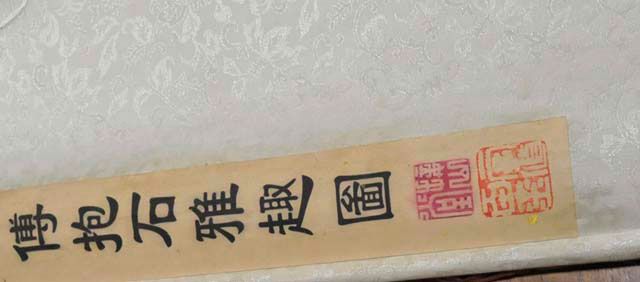 傅抱石雅趣圖